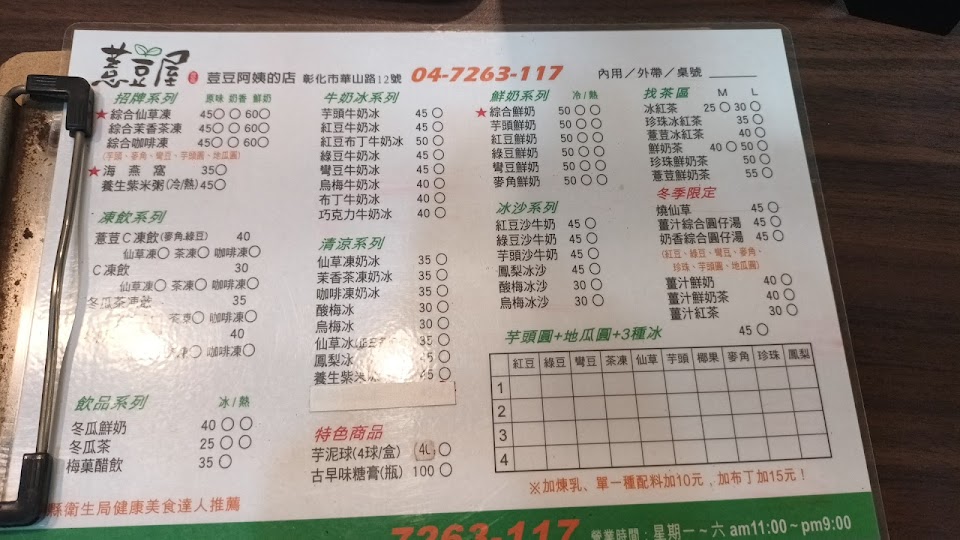 薏豆屋 荳豆阿姨的店 彰化市華山路12號 04-7263-117 內用／外帶／桌號
招牌系列 原味 奶香 鮮奶
★綜合仙草凍 45○ ○ 60○
綜合茉香茶凍 45○ ○ 60○
綜合咖啡凍 45○ ○ 60○
(芋頭、麥角、彎豆、芋頭圓、地瓜圓)
★海燕窩 35○
養生紫米粥(冷/熱) 45○
凍飲系列
薏荳C凍飲(麥角.綠豆) 40
仙草凍○ 茶凍○ 咖啡凍○
C凍飲 30
仙草凍○ 茶凍○ 咖啡凍○
冬瓜茶凍 35
○ 咖啡凍○
40
○ 咖啡凍○
飲品系列 冰/熱
冬瓜鮮奶 40 ○ ○
冬瓜茶 25 ○ ○
梅菓醋飲 35 ○
牛奶冰系列
芋頭牛奶冰 45 ○
紅豆牛奶冰 45 ○
紅豆布丁牛奶冰 50 ○
綠豆牛奶冰 45 ○
彎豆牛奶冰 45 ○
烏梅牛奶冰 40 ○
布丁牛奶冰 40 ○
巧克力牛奶冰 40 ○
清涼系列
仙草凍奶冰 35 ○
茉香茶凍奶冰 35 ○
咖啡凍奶冰 35 ○
酸梅冰 30 ○
烏梅冰 30 ○
仙草冰 35 ○
鳳梨冰 35 ○
養生紫米 45 ○
特色商品
芋泥球(4球/盒) ○
古早味糖膏(瓶) 100 ○
鮮奶系列 冷/熱
★綜合鮮奶 50 ○ ○
芋頭鮮奶 50 ○ ○
紅豆鮮奶 50 ○ ○
綠豆鮮奶 50 ○ ○
彎豆鮮奶 50 ○ ○
麥角鮮奶 50 ○ ○
冰沙系列
紅豆沙牛奶 45 ○
綠豆沙牛奶 45 ○
芋頭沙牛奶 45 ○
鳳梨冰沙 45 ○
酸梅冰沙 30 ○
烏梅冰沙 30 ○
找茶區 M L
冰紅茶 25 ○ 30 ○
珍珠冰紅茶 35 ○
薏荳冰紅茶 40 ○
鮮奶茶 40 ○ 50 ○
珍珠鮮奶茶 50 ○
薏荳鮮奶茶 55 ○
冬季限定
燒仙草 45 ○
薑汁綜合圓仔湯 45 ○
奶香綜合圓仔湯 45 ○
(紅豆、綠豆、彎豆、麥角、
珍珠、芋頭圓、地瓜圓)
薑汁鮮奶 40 ○
薑汁鮮奶茶 40 ○
薑汁紅茶 30 ○
芋頭圓+地瓜圓+3種冰 45 ○
紅豆 綠豆 彎豆 茶凍 仙草 芋頭 椰果 麥角 珍珠 鳳梨
1
2
3
4
※加煉乳、單一種配料加10元，加布丁加15元！
縣衛生局健康美食達人推薦
7263-117 營業時間：星期一~六 am11:00~pm9:00